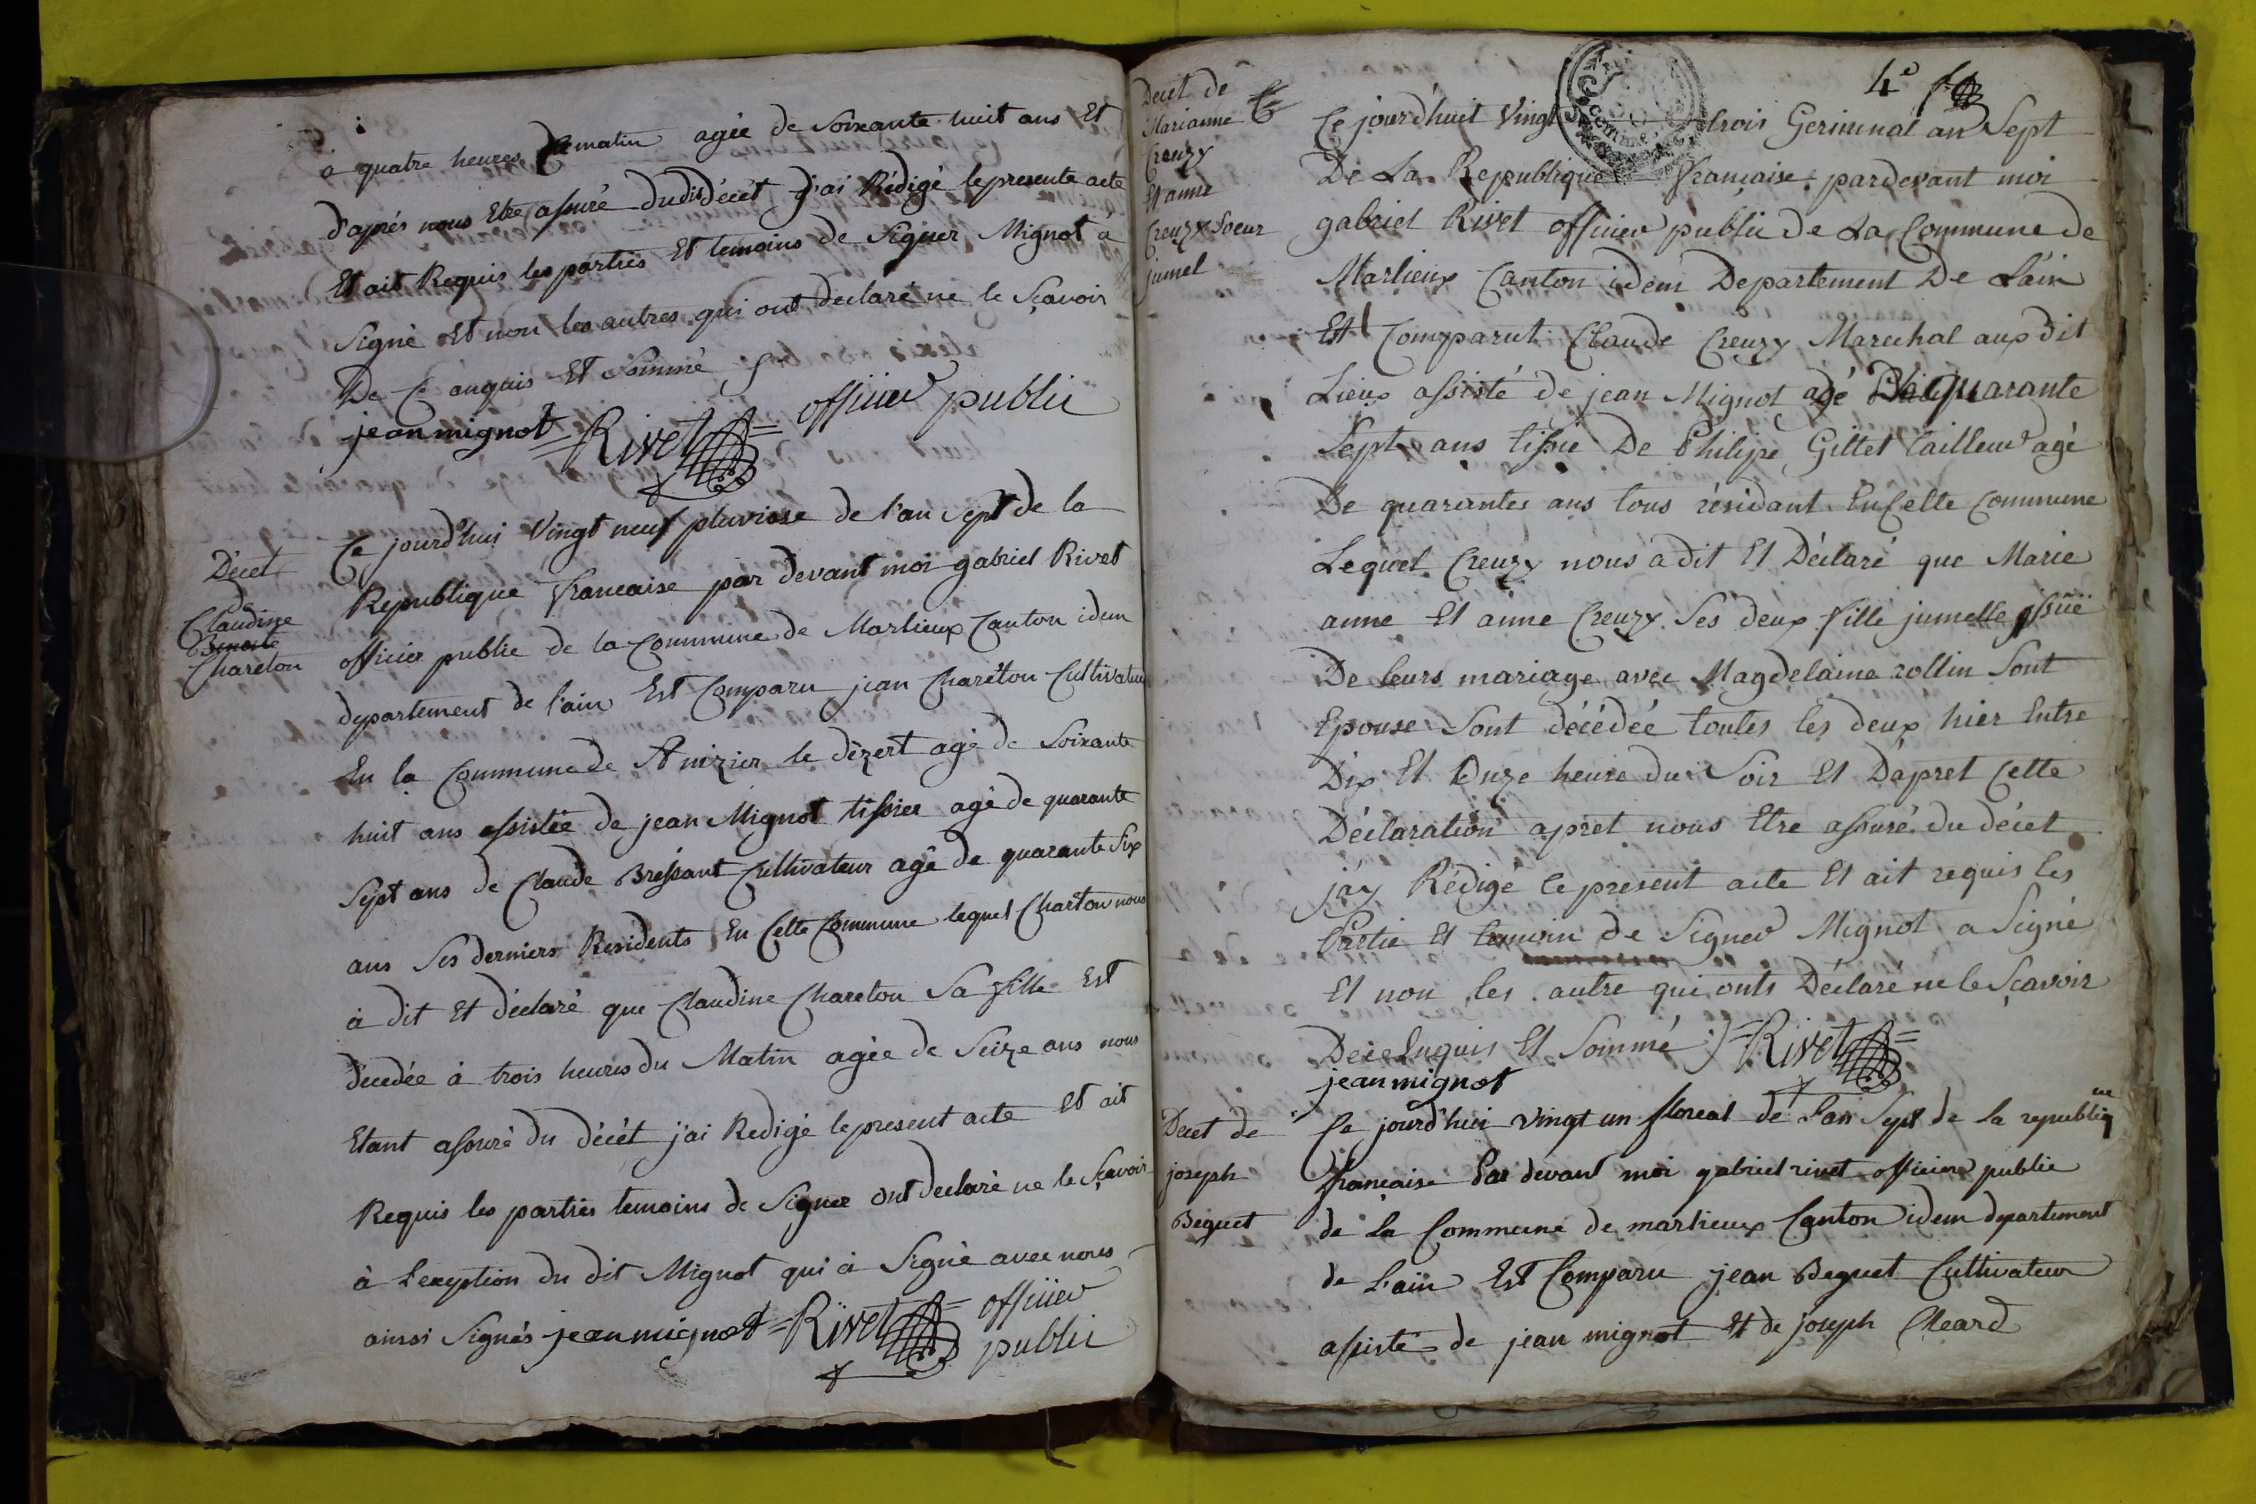 à quatre heures du matin agée de Soixante huit ans Et
d'aprés nous Etre assuré dudit décét j'ai Rédigé le presente acte
Et ait Requis les parties Et temoins de Signer Mignot à
Signé Et non les autres qui ont declaré ne le Sçavoir
De Ce anquis Et Sommé
jean mignot Rivet officier public
Décet
Claudine
Benoite
Chareton
Ce jourd'hui Vingt neuf pluviose de l'an Sept de la
Republique francaise par devant moi gabriel Rivet
officier public de la Commune de Marlieux Canton idem
departement de l'ain Est Comparu jean Charéton Cultivateur
En la Commune de St nizier le dézert agé de Soixante
huit ans assistée de jean Mignot tissier agé de quarante
Sept ans de Claude Bressant Cultivateur agé de quarante Six
ans Ses derniers Residents En Cette Commune lequel Charton nous
à dit Et déclaré que Claudine Chareton Sa fille Est
décedée à trois heures du Matin agée de Seize ans nous
Etant assuré du décét j'ai Redigé le present acte Et ait
Requis les parties temoins de Signer ont declaré ne le Sçavoir
à L'exeption du dit Mignot qui à Signé avec nous
ainsi Signés jean mignot Rivet officier
public
4e
Decet de
Marianne
Creuzy
Et anne
Creuzy Soeur
jumel
Ce jourd'huit Vingt trois Gerimnal an Sept
De La Republique francaise pardevant moi
gabriel Rivet officier public de La Commune de
Marlieux Canton idem Departement De L'ain
Est Comparut Claude Creuzy Marechal aux dit
Lieux assisté de jean Mignot agé De quarante
Sept ans tissie De Philipe Gillet tailleur agé
De quarantes ans tous résidant En Cette Commune
Lequel Creuzy nous a dit Et Déclaré que Marie
anne Et anne Creuzy Ses deux fille jumelle issüë
De leurs mariage avec Magdelaine rollin Sont
Epouse Sont décédée toutes les deux hier Entre
Dix Et Onze heure du Soir Et D'apret Cette
Déclaration apret nous Etre assuré du décet
j'ay Rédigé le present acte Et ait requis les
Partie Et temoin de Signer Mignot a Signé
Et non les autre qui onts Déclaré ne le Sçavoir
De ce Enquis Et Sommé Rivet
jean mignot
Decet de
joseph
Béguet
Ce jourd'hui vingt un floreal de L'an Sept de la republique
francaise Par devant moi gabriel rivet officier public
de La Commune de marlieux Canton idem departement
de L'ain Est Comparu jean Beguet Cultivateur
assisté de jean mignot Et de joseph Cleard